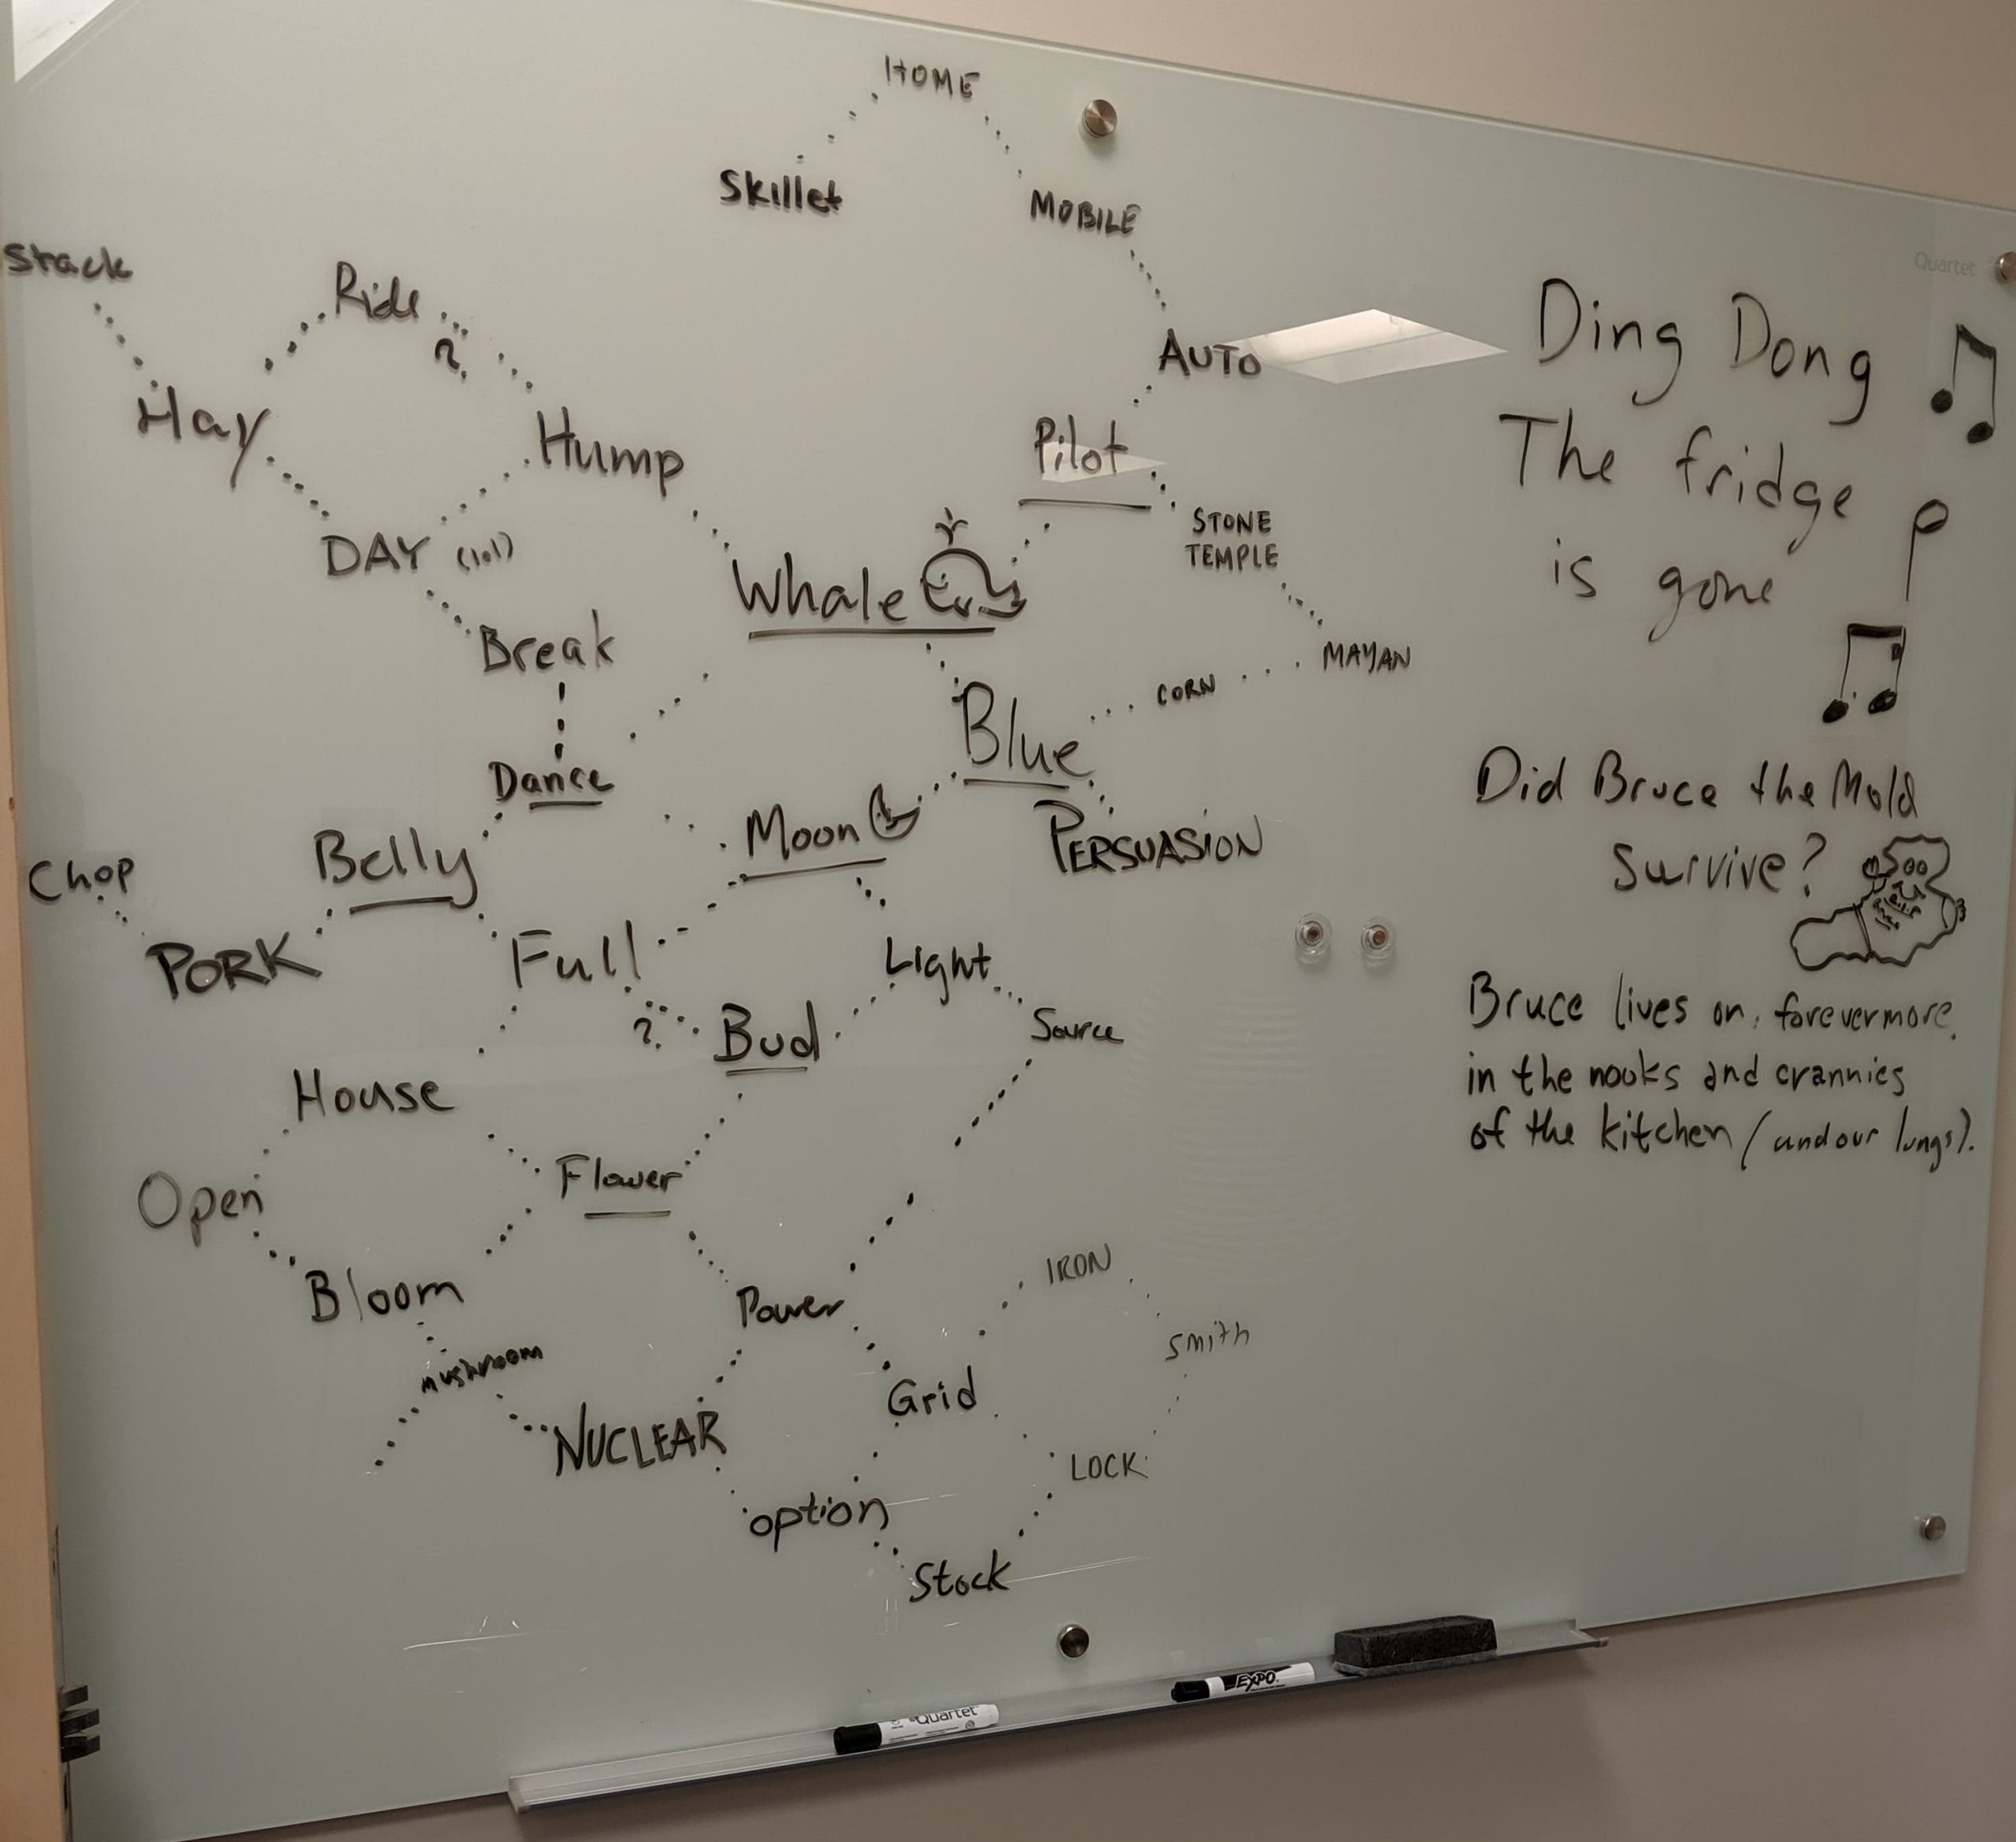 HOME
Skillet
MOBILE
Stack
Ride
?
AUTO
Hay
Hump
Pilot
STONE
TEMPLE
DAY (lol)
Whale
Break
MAYAN
CORN
Blue
Dance
Moon
PERSUASION
Belly
Chop
PORK
Full
Light
?
Bud
Source
House
Flower
Open
Bloom
Power
IRON
Smith
mushroom
Grid
NUCLEAR
LOCK
option
Stock
Quartet
Ding Dong
The fridge
is gone
Did Bruce the Mold
Survive?
Bruce lives on, forevermore,
in the nooks and crannies
of the kitchen (and our lungs).
EXPO
Quartet